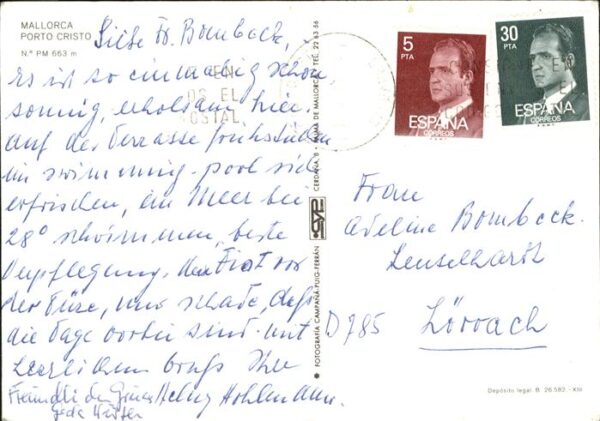 MALLORCA
PORTO CRISTO
N.º PM 663 m
Liebe Fr. Bombeck,
es ist so einmalig schön
sonnig, erholsam hier.
auf der Terrasse frühstücken
im swimming-pool sich
erfrischen, im Meer bei
28° schwimmen, beste
Verpflegung, den Fiat vor
der Türe, nur schade, daß
die Tage vorbei sind. mit
herzlichem Ihre
Helmy Hohlmann.
Freundliche Grüsse
CERDAÑA, 8 - PALMA DE MALLORCA - TEL. 22 63 56
CYP
FOTOGRAFIA CAMPAÑA-PUIG-FERRÁN
EN
OS EL
OSTAL
5
PTA
ESPAÑA
CORREOS
30
PTA
ESPAÑA
CORREOS
Frau
Adeline Bombeck.
D 785 Lörrach
Depósito legal. B. 26.582.-XIII